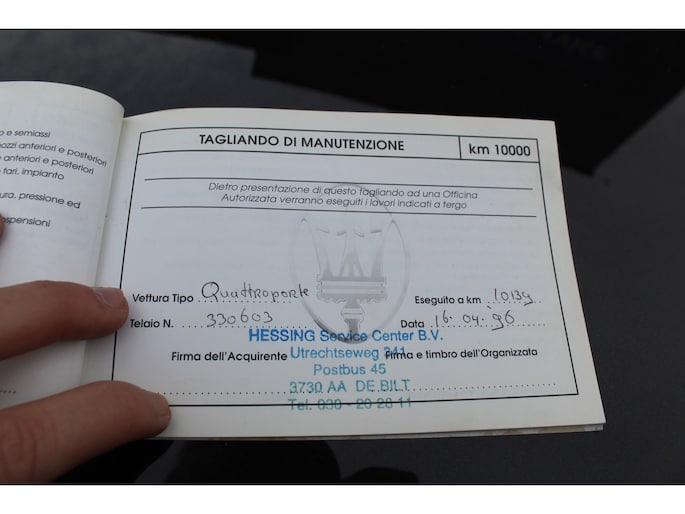 o e semiassi
ozzi anteriori e posteriori
anteriori e posteriori
fari, impianto
ura, pressione ed
ospensioni
TAGLIANDO DI MANUTENZIONE
km 10000
Dietro presentazione di questo tagliando ad una Officina
Autorizzata verranno eseguiti i lavori indicati a tergo
Vettura Tipo Quattroporte Eseguito a km 10139
Telaio N. 330603 Data 16.04.96
HESSING Service Center B.V.
Firma dell'Acquirente Utrechtseweg 341 Firma e timbro dell'Organizzata
Postbus 45
3730 AA DE BILT
Tel. 030 - 20 28 11